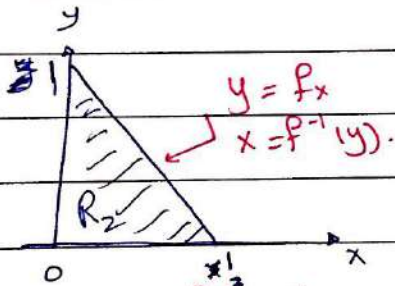 y
1
y = fx
x = f⁻¹(y).
R₂
0
x